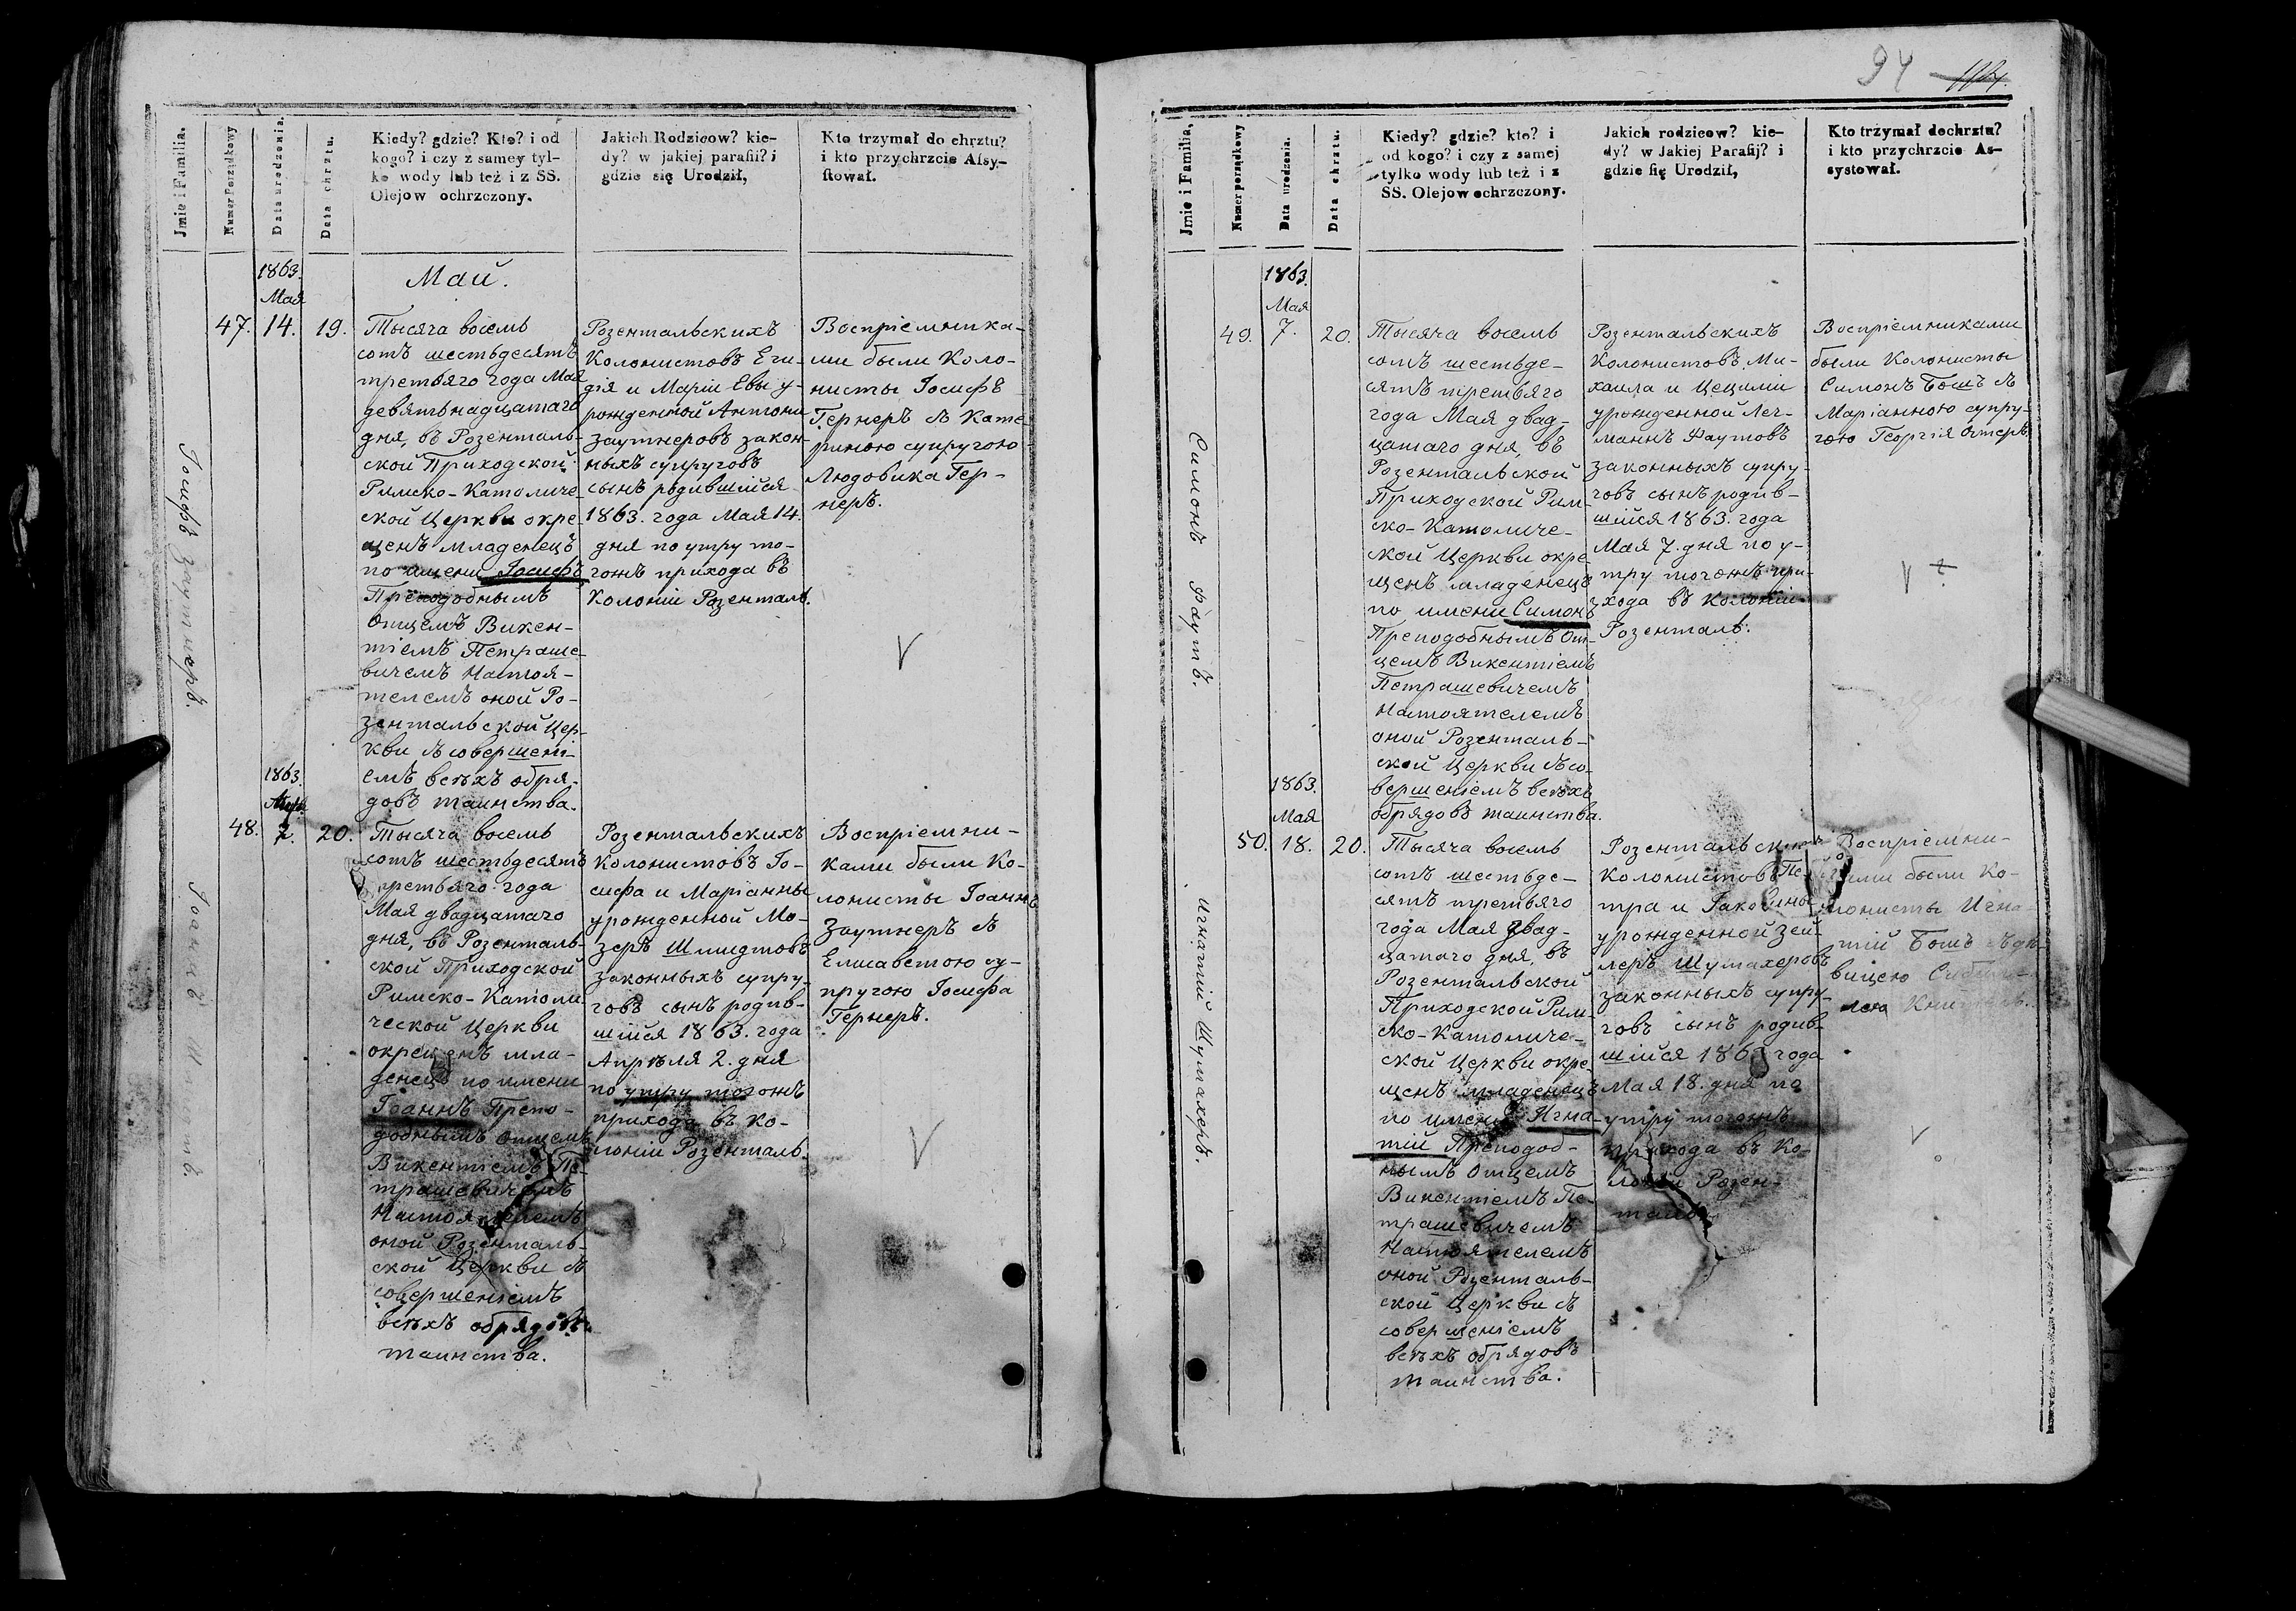 Jmie i Familia.
Numer Porządkowy
Data urodzenia.
Data chrztu.
Kiedy? gdzie? Kto? i od
kogo? i czy z samey tyl-
ko wody lub też i z SS.
Olejow ochrzczony.
Jakich Rodzicow? kie-
dy? w jakiej parafii? i
gdzie się Urodził,
Kto trzymał do chrztu?
i kto przychrzcie Assy-
stował.
1863.
Мая
Май.
Іосифъ Заутнеръ.
47. 14. 19.
Тысяча восемь
сотъ шестьдесятъ
третьяго года Мая
девятьнадцатаго
дня, въ Розенталь-
ской Приходской
Римско-Католиче-
ской Церкви окре-
щенъ младенецъ
по имени Іосифъ
Преподобнымъ
Отцемъ Викен-
тіемъ Петраше-
вичемъ Настоя-
телемъ оной Ро-
зентальской Цер-
кви съ совершені-
емъ всѣхъ обря-
довъ таинства.
Розентальскихъ
Колонистовъ Еги-
дія и Маріи Евы у-
рожденной Антони
Заутнеровъ закон-
ныхъ супруговъ
сынъ родившійся
1863. года Мая 14.
дня по утру то-
гожъ прихода въ
Колоніи Розенталь.
Воспріемника-
ми были Коло-
нисты Іосифъ
Гернеръ съ Кате-
риною супругою
Людовика Гер-
неръ.
1863.
48. 2. 20.
Іоаннъ Шмитъ.
Тысяча восемь
сотъ шестьдесятъ
третьяго года
Мая двадцатаго
дня, въ Розенталь-
ской Приходской
Римско-Католи-
ческой Церкви
окрещенъ мла-
денецъ по имени
Іоаннъ Препо-
добнымъ Отцемъ
Викентіемъ Пе-
трашевичемъ
Настоятелемъ
оной Розенталь-
ской Церкви съ
совершеніемъ
всѣхъ обрядовъ
таинства.
Розентальскихъ
Колонистовъ Іо-
сифа и Маріанны
урожденной Мо-
зеръ Шмидтовъ
законныхъ супру-
говъ сынъ родив-
шійся 1863. года
Апрѣля 2. дня
по утру тогожъ
прихода въ Ко-
лоніи Розенталь.
Воспріемни-
ками были Ко-
лонисты Іоаннъ
Заутнеръ съ
Елисаветою су-
пругою Іосифа
Гернеръ.
94
Jmie i Familia.
Numer porządkowy
Data urodzenia.
Data chrztu.
Kiedy? gdzie? kto? i
od kogo? i czy z samej
tylko wody lub też i z
SS. Olejow ochrzczony.
Jakich rodzicow? kie-
dy? w Jakiej Parafij? i
gdzie się Urodził,
Kto trzymał dochrztu?
i kto przychrzcie As-
systował.
1863.
Мая
49. 7. 20.
Симонъ Фаутъ.
Тысяча восемь
сотъ шестьде-
сятъ третьяго
года Мая двад-
цатаго дня, въ
Розентальской
Приходской Рим-
ско-Католиче-
ской Церкви окре-
щенъ младенецъ
по имени Симонъ
Преподобнымъ От-
цемъ Викентіемъ
Петрашевичемъ
Настоятелемъ
оной Розенталь-
ской Церкви съ со-
вершеніемъ всѣхъ
обрядовъ таинства.
Розентальскихъ
Колонистовъ Ми-
хаила и Цециліи
урожденной Лег-
маннъ Фаутовъ
законныхъ супру-
говъ сынъ родив-
шійся 1863. года
Мая 7. дня по у-
тру тогожъ при-
хода въ Колоніи
Розенталь.
Воспріемниками
были Колонисты
Симонъ Бошъ съ
Маріанною супру-
гою Георгія Фтеръ.
1863.
Мая
50. 18. 20.
Игнатій Шумахеръ.
Тысяча восемь
сотъ шестьде-
сятъ третьяго
года Мая двад-
цатаго дня, въ
Розентальской
Приходской Рим-
ско-Католиче-
ской Церкви окре-
щенъ младенецъ
по имени Игна-
тій Преподоб-
нымъ Отцемъ
Викентіемъ Пе-
трашевичемъ
Настоятелемъ
оной Розенталь-
ской Церкви съ
совершеніемъ
всѣхъ обрядовъ
таинства.
Розентальскихъ
Колонистовъ Пе-
тра и Іаковины
урожденной Зей-
леръ Шумахеровъ
законныхъ супру-
говъ сынъ родив-
шійся 1863 года
Мая 18. дня по
утру тогожъ
прихода въ Ко-
лоніи Розен-
таль.
Воспріемни-
ками были Ко-
лонисты Игна-
тій Бошъ съ дѣ-
вицею